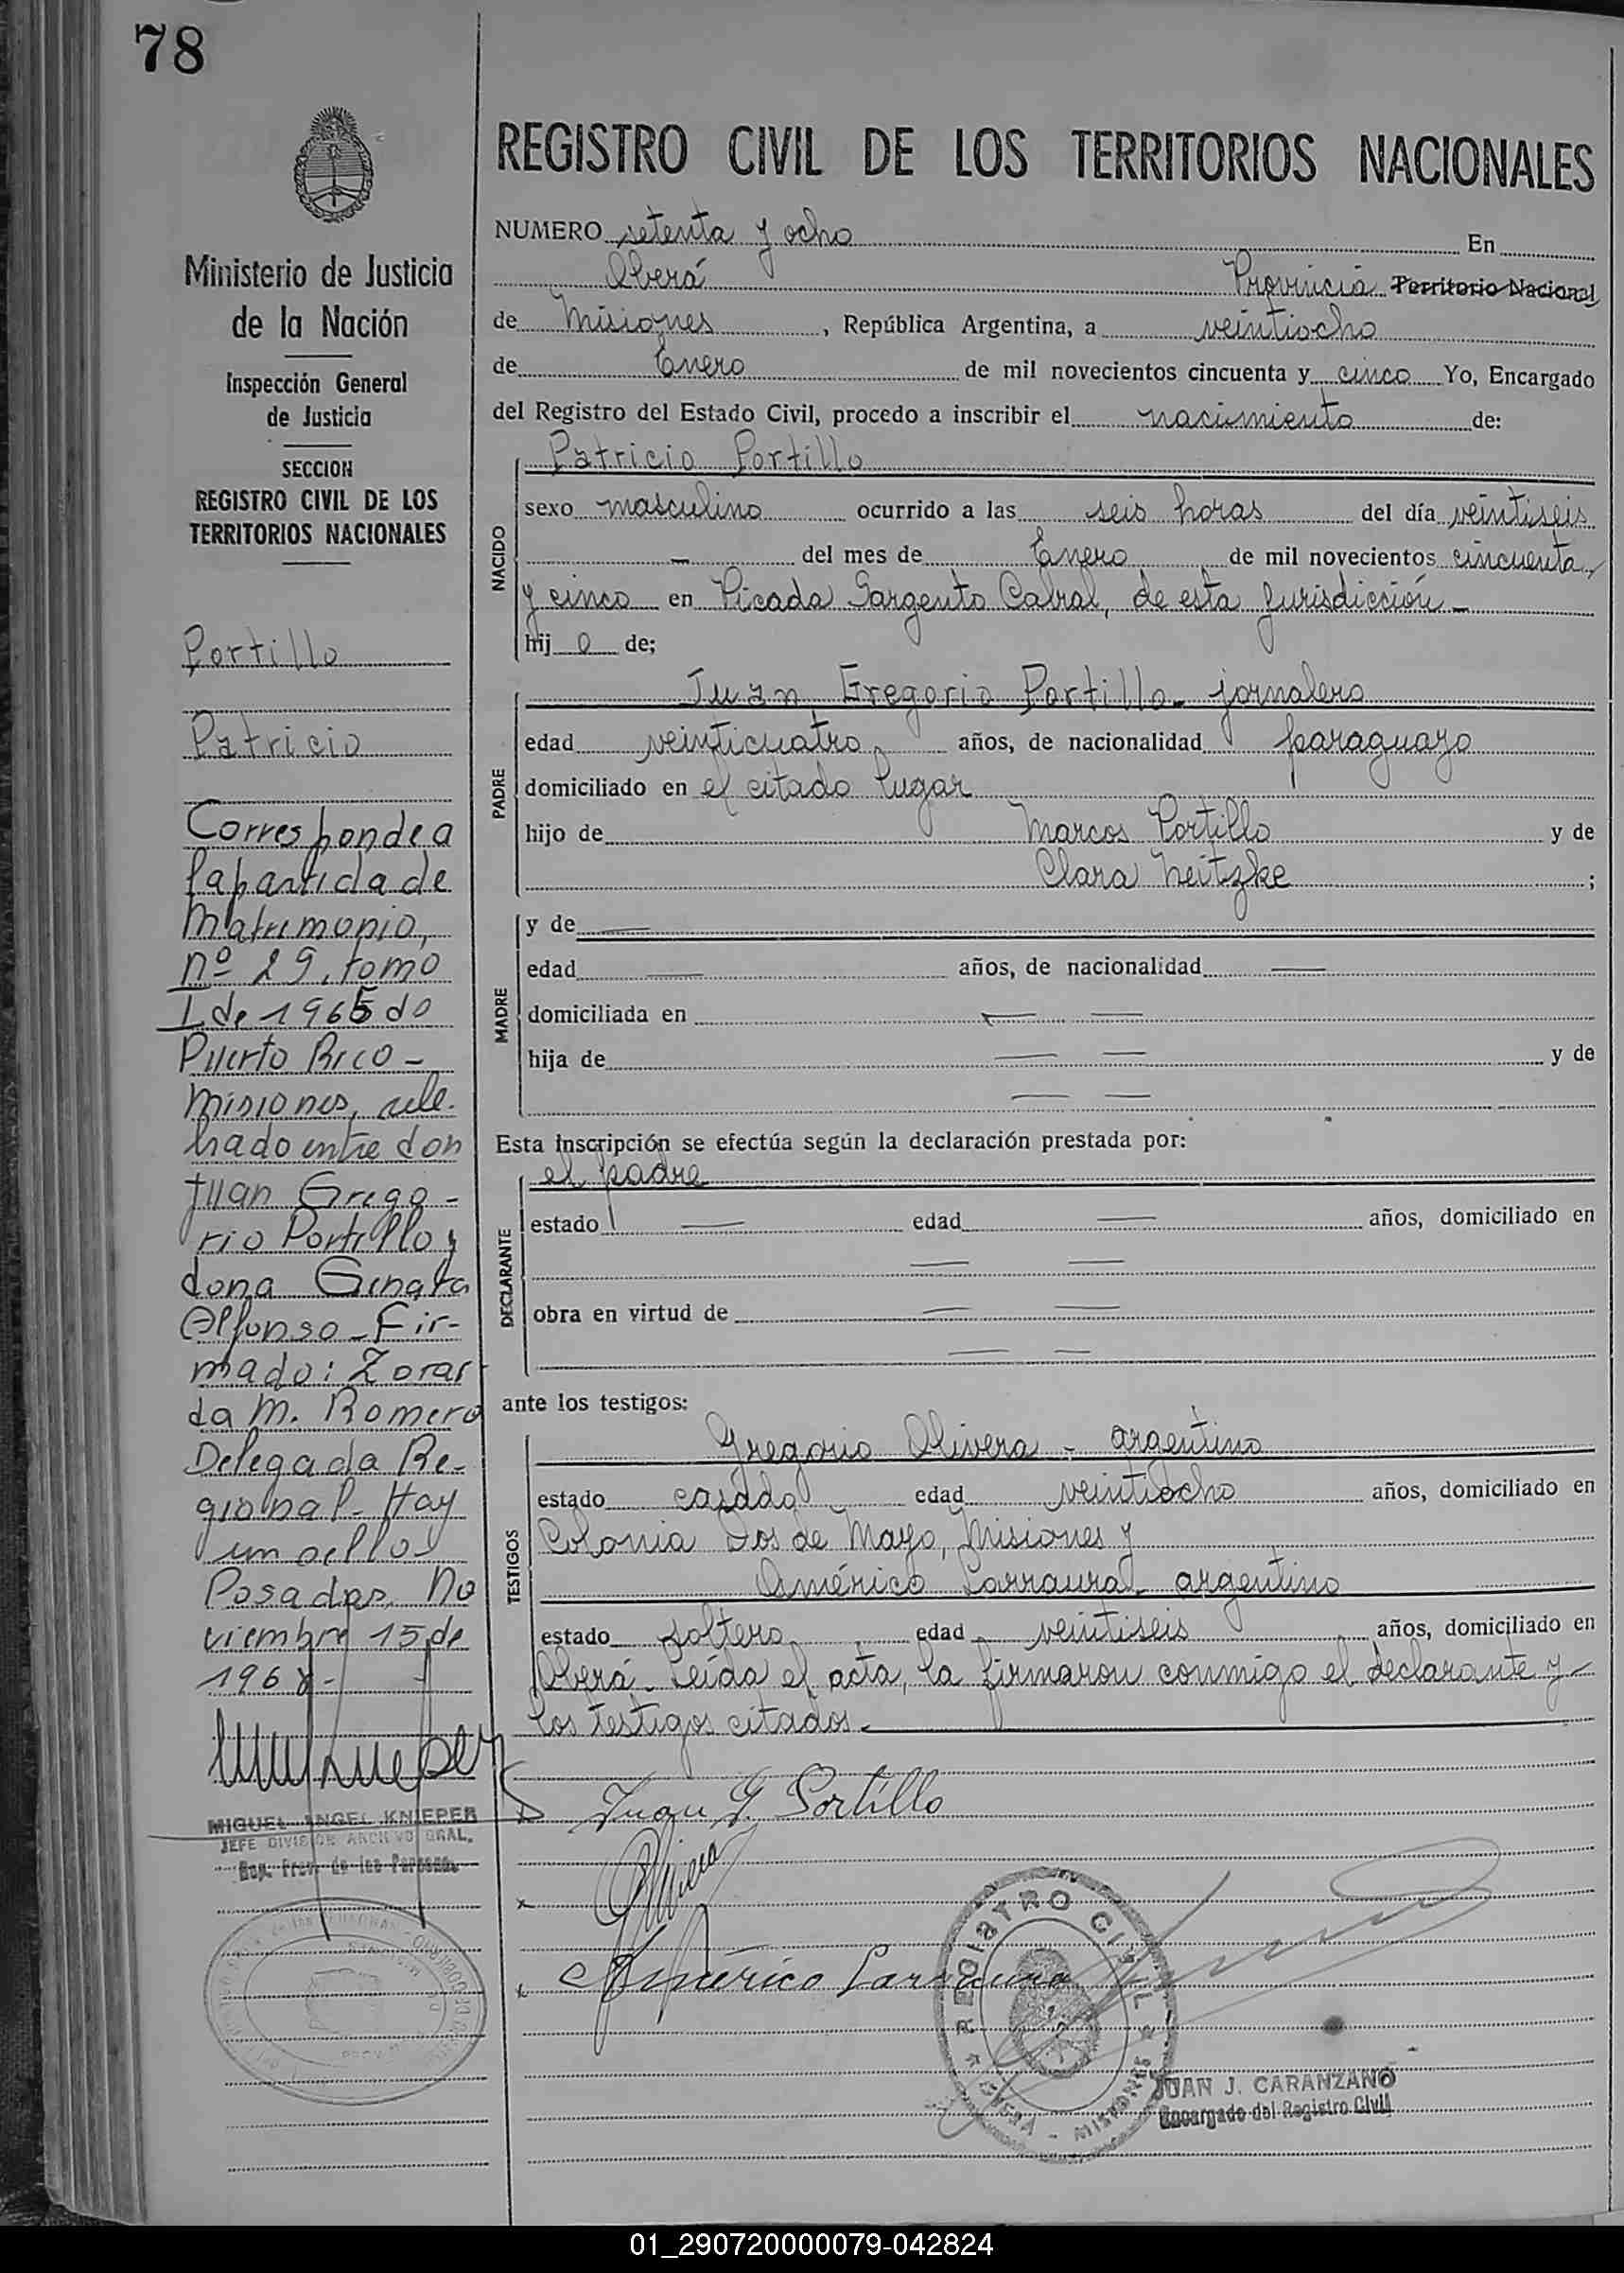 78
Ministerio de Justicia
de la Nación
Inspección General
de Justicia
SECCION
REGISTRO CIVIL DE LOS
TERRITORIOS NACIONALES
Portillo
Patricio
Corresponde a
la partida de
Matrimonio,
nº 29, tomo
I de 1965 do
Puerto Rico -
Misiones, cele-
brado entre don
Juan Grego-
rio Portillo y
dona Genara
Alfonso - Fir-
mado: Zorai
da M. Romero
Delegada Re-
gional - Hay
un sello -
Posadas, No
viembre 15 de
1968 -
MIGUEL ANGEL KNIEPER
JEFE DIVISION ARCHIVO GRAL.
Reg. Prov. de las Personas
REGISTRO CIVIL DE LOS TERRITORIOS NACIONALES
NUMERO setenta y ocho En
Oberá Provincia Territorio Nacional
de Misiones, República Argentina, a veintiocho
de Enero de mil novecientos cincuenta y cinco Yo, Encargado
del Registro del Estado Civil, procedo a inscribir el nacimiento de:
NACIDO
Patricio Portillo
sexo masculino ocurrido a las seis horas del día veintiseis
- del mes de Enero de mil novecientos cincuenta
y cinco en Picada Sargento Cabral, de esta jurisdicción -
hij o de;
PADRE
Juan Gregorio Portillo - jornalero
edad veinticuatro años, de nacionalidad paraguayo
domiciliado en el citado lugar
hijo de Marcos Portillo y de
Clara Neitzke ;
MADRE
y de —
edad — años, de nacionalidad —
domiciliada en — —
hija de — — y de
— —
Esta inscripción se efectúa según la declaración prestada por:
DECLARANTE
el padre
estado — edad — años, domiciliado en
— —
obra en virtud de — —
— —
ante los testigos:
TESTIGOS
Gregorio Olivera - argentino
estado casado edad veintiocho años, domiciliado en
Colonia Dos de Mayo, Misiones y
Américo Larraura - argentino
estado soltero edad veintiseis años, domiciliado en
Oberá. Leída el acta, la firmaron conmigo el declarante y
los testigos citados. -
Juan G. Portillo
Olivera
Américo Larraura
REGISTRO CIVIL
OBERA - MISIONES
JUAN J. CARANZANO
Encargado del Registro Civil
01_290720000079-042824